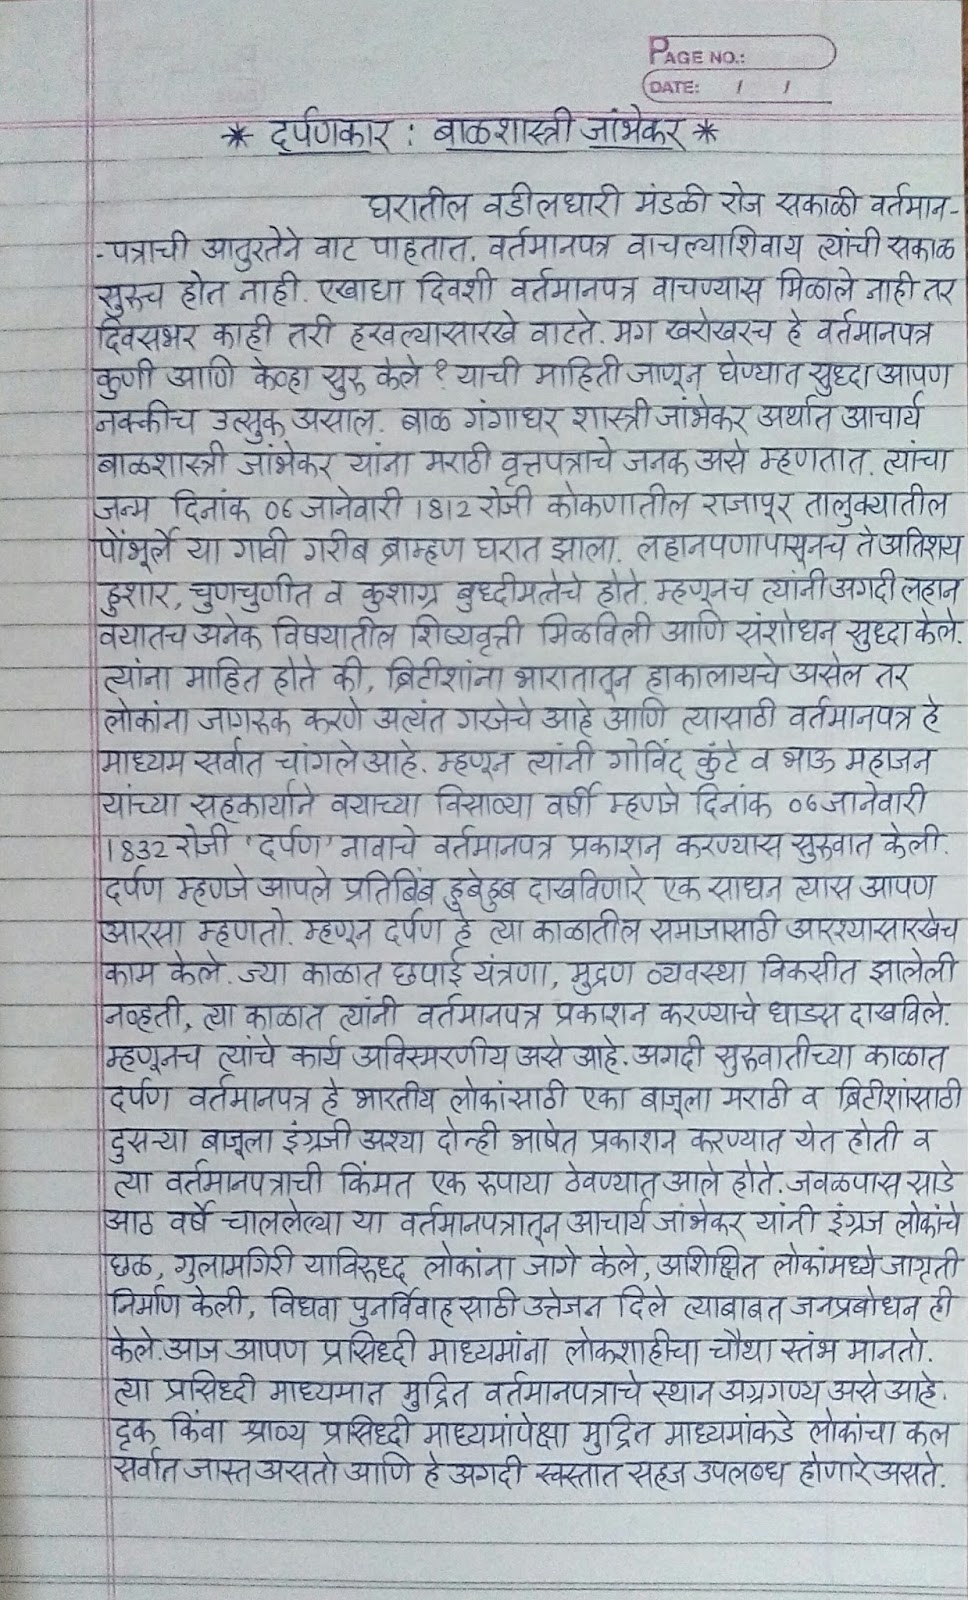 PAGE NO.:
DATE: / /
* दर्पणकार : बाळशास्त्री जांभेकर *
घरातील वडीलधारी मंडळी रोज सकाळी वर्तमान-
- पत्राची आतुरतेने वाट पाहतात. वर्तमानपत्र वाचल्याशिवाय त्यांची सकाळ
सुरुच होत नाही. एखाद्या दिवशी वर्तमानपत्र वाचण्यास मिळाले नाही तर
दिवसभर काही तरी हरवल्यासारखे वाटते. मग खरोखरच हे वर्तमानपत्र
कुणी आणि केव्हा सुरु केले ? याची माहिती जाणून घेण्यात सुध्दा आपण
नक्कीच उत्सुक असाल. बाळ गंगाधर शास्त्री जांभेकर अर्थात आचार्य
बाळशास्त्री जांभेकर यांना मराठी वृत्तपत्राचे जनक असे म्हणतात. त्यांचा
जन्म दिनांक 06 जानेवारी 1812 रोजी कोकणातील राजापूर तालुक्यातील
पोंभूर्ले या गावी गरीब ब्राम्हण घरात झाला. लहानपणापासूनच ते अतिशय
हुशार, चुणचुणीत व कुशाग्र बुध्दीमत्तेचे होते. म्हणूनच त्यांनी अगदी लहान
वयातच अनेक विषयातील शिष्यवृत्ती मिळविली आणि संशोधन सुध्दा केले.
त्यांना माहित होते की, ब्रिटीशांना भारातातून हाकालायचे असेल तर
लोकांना जागरुक करणे अत्यंत गरजेचे आहे आणि त्यासाठी वर्तमानपत्र हे
माध्यम सर्वात चांगले आहे. म्हणून त्यांनी गोविंद कुंटे व भाऊ महाजन
यांच्या सहकार्याने वयाच्या विसाव्या वर्षी म्हणजे दिनांक 06 जानेवारी
1832 रोजी 'दर्पण' नावाचे वर्तमानपत्र प्रकाशन करण्यास सुरुवात केली.
दर्पण म्हणजे आपले प्रतिबिंब हुबेहुब दाखविणारे एक साधन त्यास आपण
आरसा म्हणतो. म्हणून दर्पण हे त्या काळातील समाजासाठी आरश्यासारखेच
काम केले. ज्या काळात छपाई यंत्रणा, मुद्रण व्यवस्था विकसीत झालेली
नव्हती, त्या काळात त्यांनी वर्तमानपत्र प्रकाशन करण्याचे धाडस दाखविले.
म्हणूनच त्यांचे कार्य अविस्मरणीय असे आहे. अगदी सुरुवातीच्या काळात
दर्पण वर्तमानपत्र हे भारतीय लोकांसाठी एका बाजूला मराठी व ब्रिटीशांसाठी
दुसऱ्या बाजूला इंग्रजी अश्या दोन्ही भाषेत प्रकाशन करण्यात येत होती व
त्या वर्तमानपत्राची किंमत एक रुपाया ठेवण्यात आले होते. जवळपास साडे
आठ वर्षे चाललेल्या या वर्तमानपत्रातून आचार्य जांभेकर यांनी इंग्रज लोकांचे
छळ, गुलामगिरी याविरुध्द लोकांना जागे केले, अशिक्षित लोकांमध्ये जागृती
निर्माण केली, विधवा पुनर्विवाहसाठी उत्तेजन दिले त्याबाबत जनप्रबोधन ही
केले. आज आपण प्रसिध्दी माध्यमांना लोकशाहीचा चौथा स्तंभ मानतो.
त्या प्रसिध्दी माध्यमात मुद्रित वर्तमानपत्राचे स्थान अग्रगण्य असे आहे.
दृक किंवा श्राव्य प्रसिध्दी माध्यमांपेक्षा मुद्रित माध्यमांकडे लोकांचा कल
सर्वात जास्त असतो आणि हे अगदी स्वस्तात सहज उपलब्ध होणारे असते.